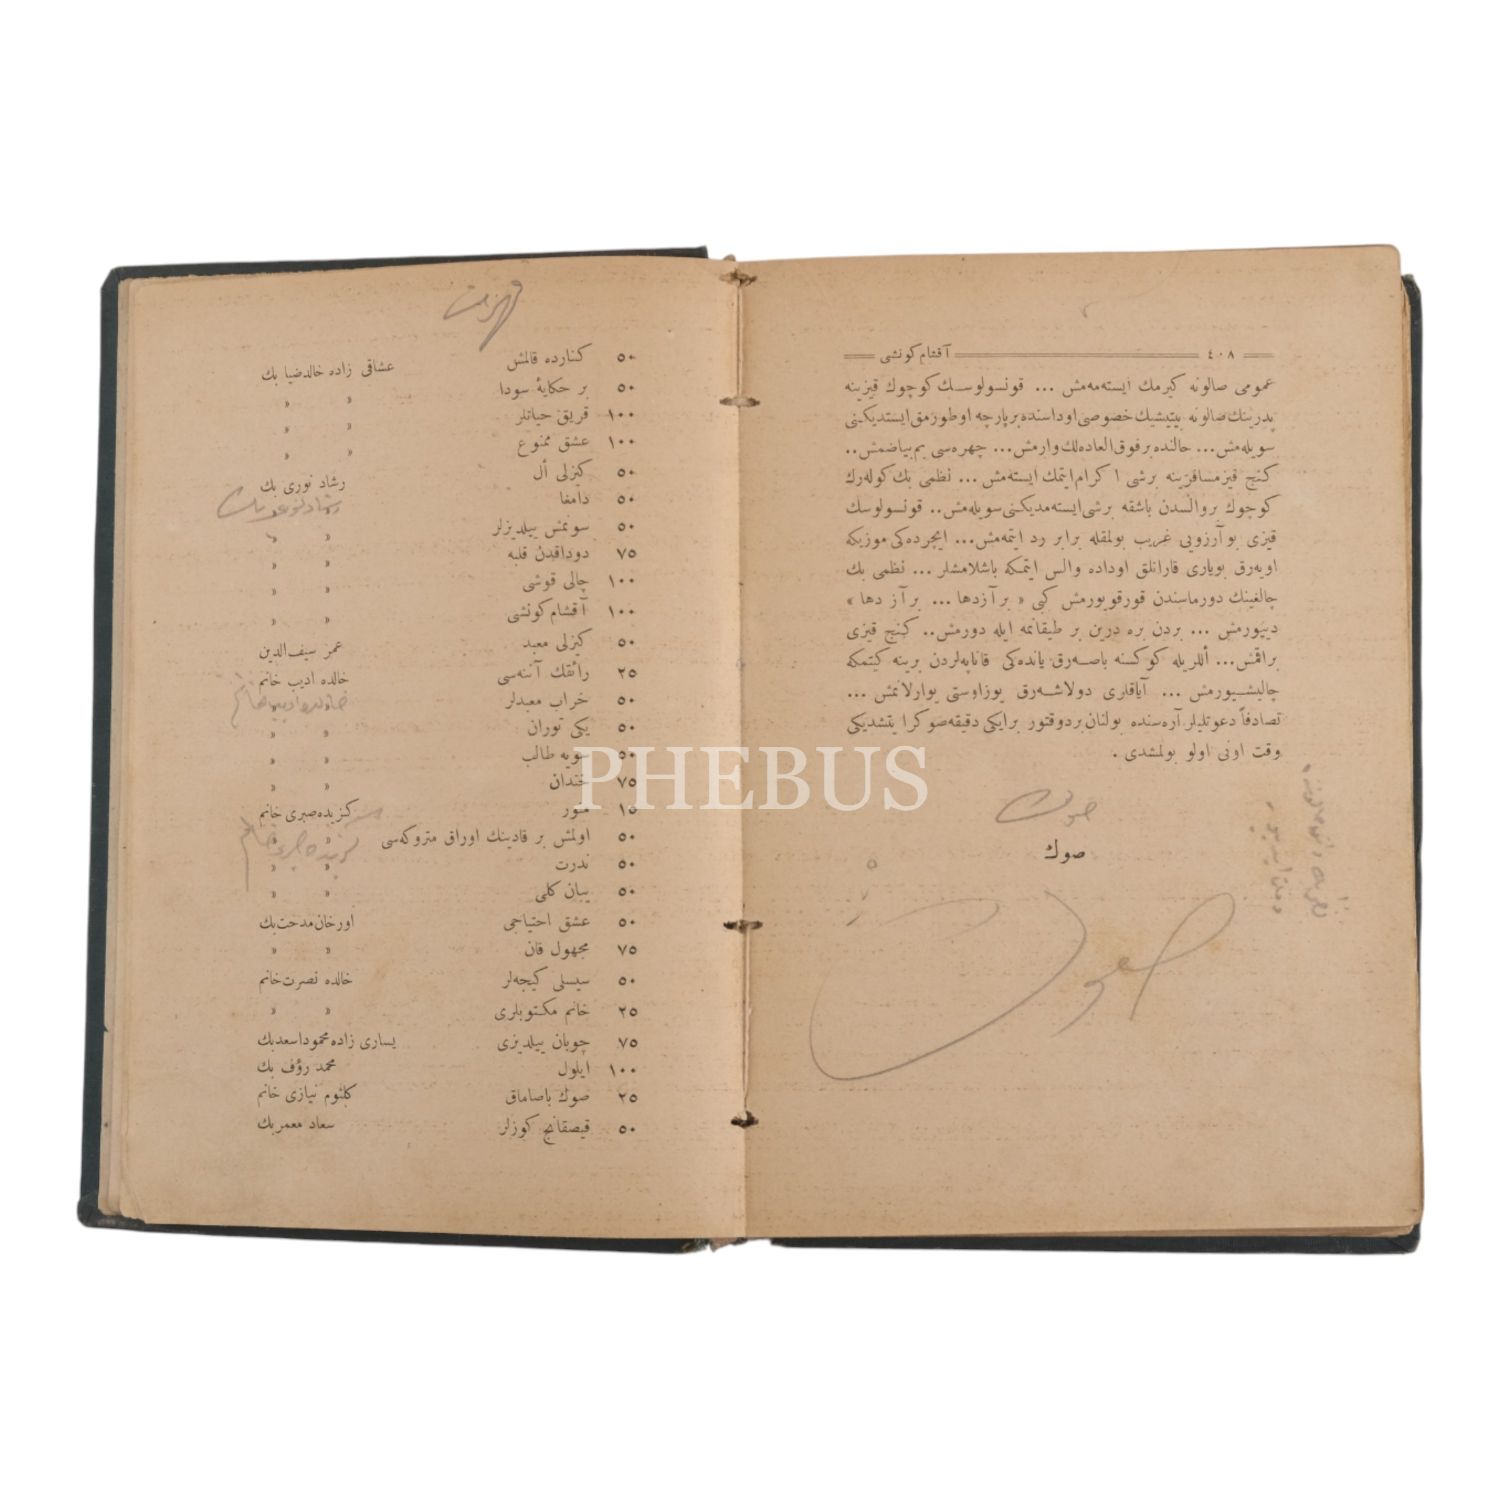 ٤٠٨ آقشام كونشی
عمومی صالونه كیرمك ایسته‌مه‌مش ... قونسولوسك كوچوك قیزینه
پدرینك صالونه بیتیشیك خصوصی اوداسنده برپارچه اوطورمق ایستدیكنی
سویله‌مش... حالنده برفوق العاده‌لك وارمش... چهره‌سی بم بیاضمش..
كنج قیز مسافرینه برشی اكرام ایتمك ایسته‌مش ... نظمی بك كوله‌رك
كوچوك بر والسدن باشقه برشی ایسته‌مدیكنی سویله‌مش.. قونسولوسك
قیزی بو آرزویی غریب بولمقله برابر رد ایتمه‌مش... ایچرده‌كی موزیكه
اویه‌رق بویاری قارانلق اوداده والس ایتمكه باشلامشلر ... نظمی بك
چالغینك دورماسندن قورقویورمش كبی « بر آزدها ... بر آز دها »
دییورمش ... بردن بره درین بر طیقانمه ایله دورمش.. كنج قیزی
براقمش... أللریله كوكسنه باصه‌رق یانده‌كی قاناپه‌لردن برینه كیتمكه
چالیشیورمش ... آیاقلری دولاشه‌رق یوزاوستی یوارلانمش ...
تصادفاً دعوتلیلر آره‌سنده بولنان بردوقتور برایكی دقیقه صوكرا یتشدیكی
وقت اونی اولو بولمشدی .
صوك
صوك
صوك
فهرست
٥٠ كنارده قالمش عشاقی زاده خالدضیا بك
٥٠ بر حكایۀ سودا » »
١٠٠ قریق حیاتلر » »
١٠٠ عشق ممنوع » »
٥٠ كیزلی أل رشاد نوری بك
٥٠ دامغا
٥٠ سونمش ییلدیزلر » »
٧٥ دوداقدن قلبه » »
١٠٠ چالی قوشی » »
١٠٠ آقشام كونشی » »
٥٠ كیزلی معبد عمر سیف‌الدین
٢٥ رائقك آننه‌سی خالده ادیب خانم
٥٠ خراب معبدلر
٥٠ یكی توران » »
٥٠ سویه طالب » »
٧٥ خندان » »
١٥ منور كزیده صبری خانم
٥٠ اولمش بر قادینك اوراق متروكه‌سی » »
٥٠ ندرت » »
٥٠ یبان كلی » »
٥٠ عشق احتیاجی اورخان مدحت بك
٧٥ مجهول قان » »
٥٠ سیسلی كیجه‌لر خالده نصرت خانم
٢٥ خانم مكتوبلری » »
٧٥ چوبان ییلدیزی یساری زاده محمود اسعد بك
١٠٠ ایلول محمد رؤف بك
٢٥ صوك باصاماق كلثوم نیازی خانم
٥٠ قیصقانج كوزلر سعاد معمر بك
PHEBUS